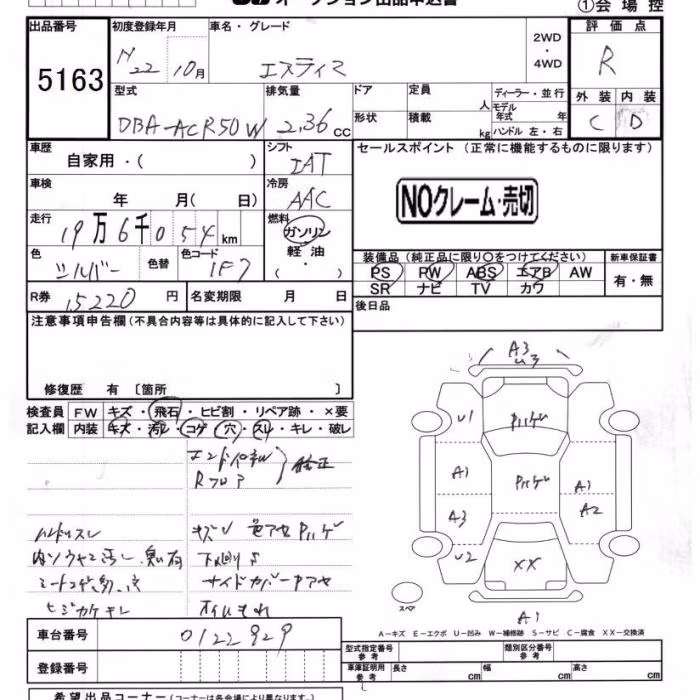 ①会場控
出品番号 初度登録年月 車名・グレード 2WD ・ 4WD 評価点
5163 H22 10月 エスティマ R
型式 排気量 ドア 定員 人 ディーラー・並行 外装 内装
DBA-ACR50W 2.36cc 形状 積載 kg モデル年式 年 ハンドル 左・右 C D
車歴 自家用・( ) シフト IAT セールスポイント (正常に機能するものに限ります)
車検 年 月( 日) 冷房 AAC NOクレーム・売切
走行 19万6千054km 燃料 ガソリン 軽油 ・ ( )
色 シルバー 色替 色コード 1F7
装備品 (純正品に限り○をつけてください) 新車保証書
PS PW ABS エアB AW 有・無
SR ナビ TV カワ
R券 15220円 名変期限 月 日 後日品
注意事項申告欄(不具合内容等は具体的に記入して下さい)
修復歴 有 〔箇所 〕
検査員 FW キズ・飛石・ヒビ割・リペア跡・×要
記入欄 内装 キズ・汚レ・コゲ・穴・スレ・キレ・破レ
Rフロア 修正
ハンドルスレ キズU 色アセ Pハゲ
下廻りサ
サイドカバー
ヒジカケキレ オイルもれ
A3
U1 Pハゲ
A1 Pハゲ A1
A3 A2
U2 XX
スペア
A1
A－キズ E－エクボ U－凹み W－補修跡 S－サビ C－腐食 XX－交換済
車台番号 0122929
登録番号
型式指定番号 参考 類別区分番号 参考
車庫証明用 参考 長さ cm 幅 cm 高さ cm
希望出品コーナー (コーナーは各会場により異なります)